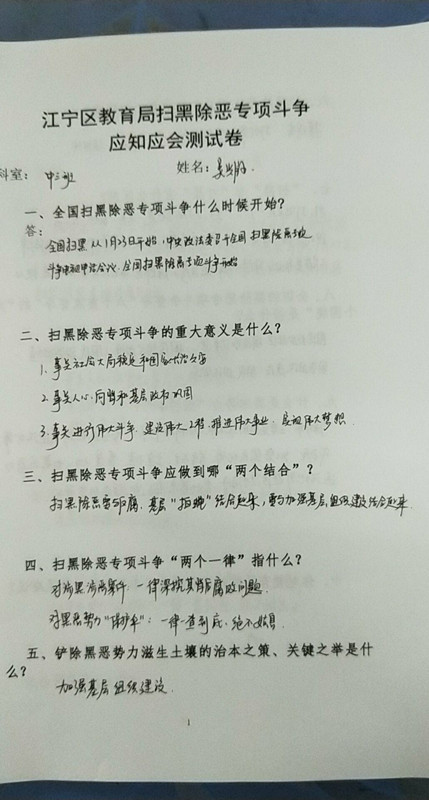 江宁区教育局扫黑除恶专项斗争
应知应会测试卷
科室： 中三班 姓名：
一、全国扫黑除恶专项斗争什么时候开始？
答：
全国扫黑从1月23日开始，中央政法委召开全国扫黑除恶专项
斗争电视电话会议，全国扫黑除恶专项斗争开始
二、扫黑除恶专项斗争的重大意义是什么？
1.事关社会大局稳定和国家长治久安
2.事关人心向背和基层政权巩固
3.事关进行伟大斗争，建设伟大工程，推进伟大事业，实现伟大梦想．
三、扫黑除恶专项斗争应做到哪“两个结合”？
扫黑除恶要与反腐，基层“拍蝇”结合起来，要与加强基层组织建设结合起来．
四、扫黑除恶专项斗争“两个一律”指什么？
对涉黑涉恶案件：一律深挖其背后腐败问题．
对黑恶势力“保护伞”：一律一查到底，绝不姑息．
五、铲除黑恶势力滋生土壤的治本之策、关键之举是什
么？
加强基层组织建设．
1